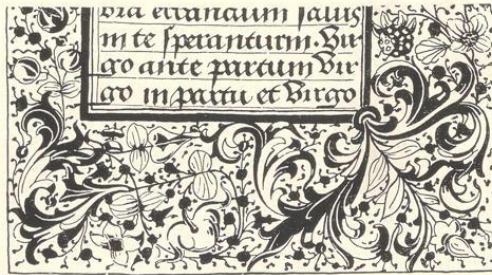 via errancium salus
in te speranturm. Vir
go ante partum Vir
go in partu et Virgo